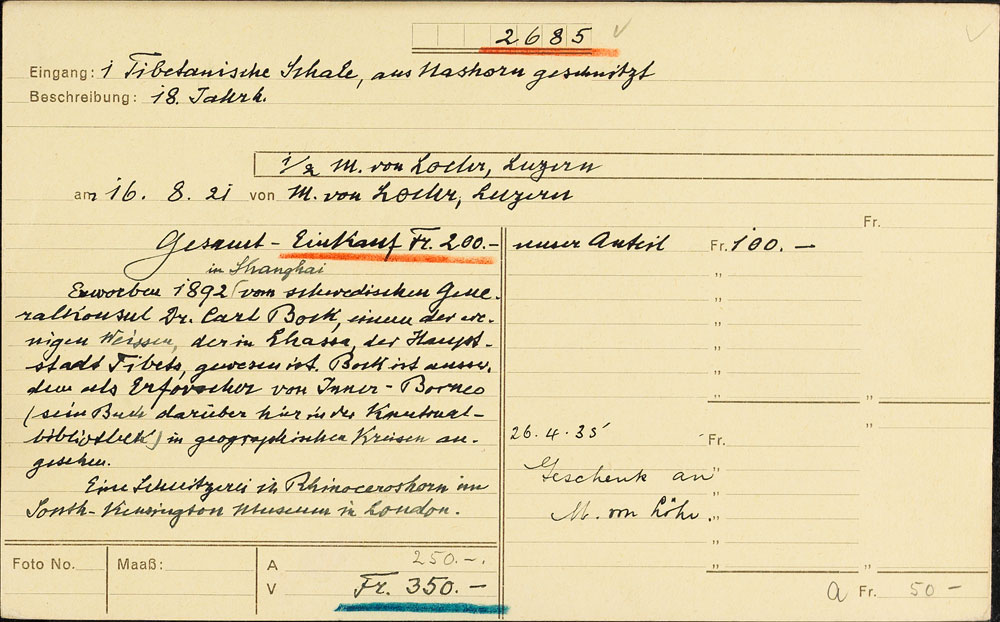 2685
Eingang: 1 Tibetanische Schale, aus Nashorn geschnitzt
Beschreibung: 18. Jahrh.
1/2 M. von Loehr, Luzern
am 16. 8. 21 von M. von Loehr, Luzern
Fr.
Gesamt - Einkauf Fr. 200.- unser Anteil Fr. 100.-
in Shanghai
Erworben 1892 vom schwedischen Gene-
ralkonsul Dr. Carl Bock, einem der we-
nigen Weissen, der in Lhassa, der Haupt-
stadt Tibets, gewesen ist. Bock ist ausser-
dem als Erforscher von Inner-Borneo
(sein Buch darüber hier in der Kantonal-
bibliothek) in geographischen Kreisen an-
gesehen.
Eine Schnitzerei in Rhinoceroshorn im
South-Kensington Museum in London.
26.4.35 Fr.
Geschenk an
M. von Löhr.
Foto No. Maaß: A 250.-.
V Fr. 350.-
a Fr. 50 -